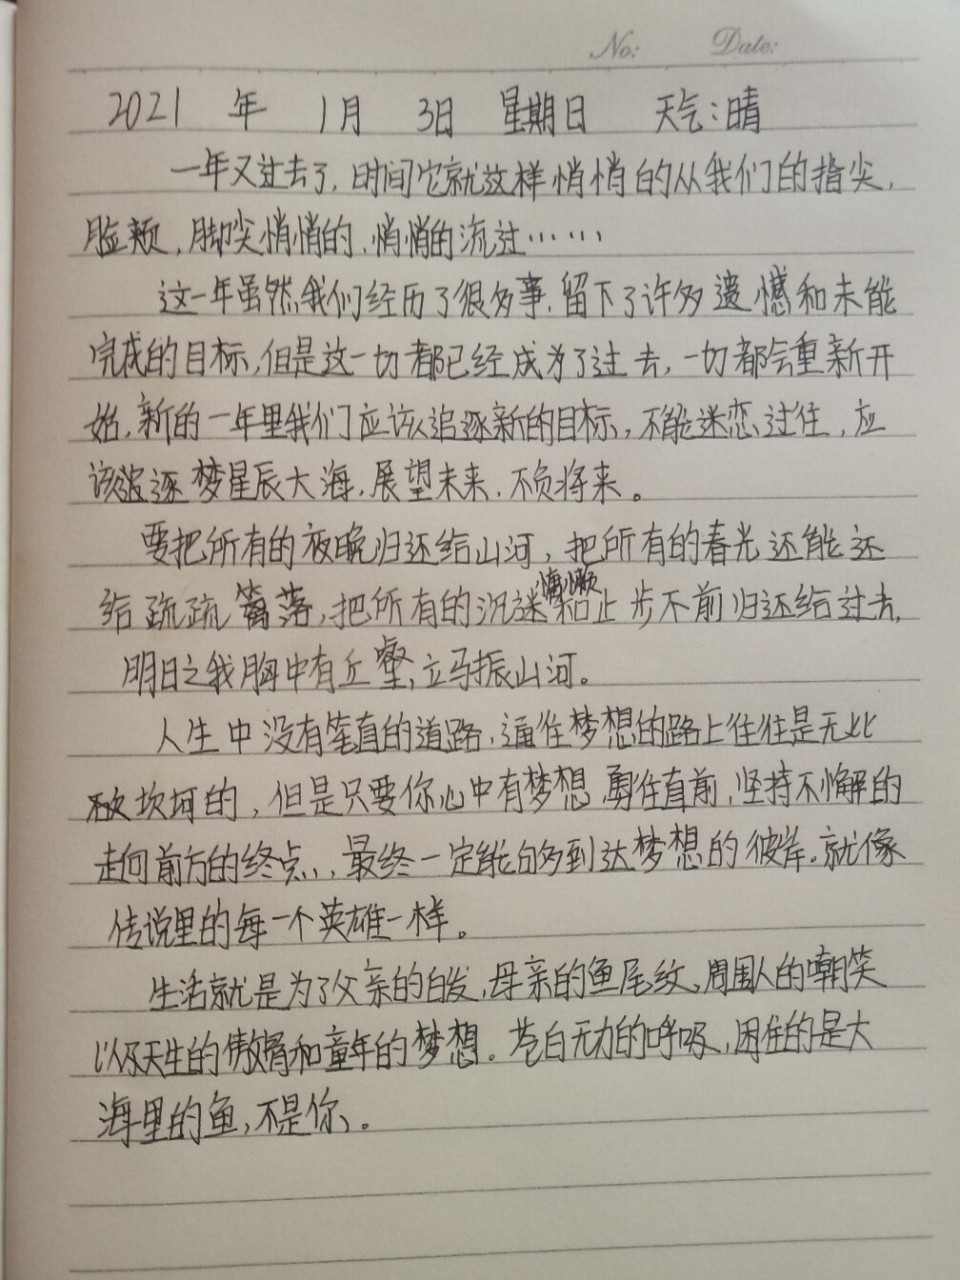 No: Date:
2021 年 1月 3日 星期日 天气:晴
一年又过去了,时间它就这样悄悄的从我们的指尖,
脸颊,脚尖悄悄的,悄悄的流过……
这一年虽然我们经历了很多事,留下了许多遗憾和未能
完成的目标,但是这一切都已经成为了过去,一切都会重新开
始,新的一年里我们应该追逐新的目标,不能迷恋过往,应
该追逐梦星辰大海,展望未来,不负将来。
要把所有的夜晚归还给山河,把所有的春光还能还
给疏疏篱落,把所有的沉迷慵懒和止步不前归还给过去,
明日之我胸中有丘壑,立马振山河。
人生中没有笔直的道路,通往梦想的路上往往是无比
坎坷的,但是只要你心中有梦想 勇往直前,坚持不懈的
走向前方的终点,最终一定能够到达梦想的彼岸。就像
传说里的每一个英雄一样。
生活就是为了父亲的白发,母亲的鱼尾纹,周围人的嘲笑
以及天生的傲骨和童年的梦想。苍白无力的呼吸,困住的是大
海里的鱼,不是你、。